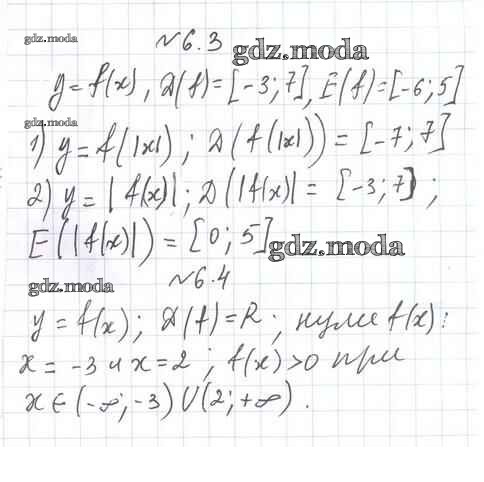 gdz.moda
№6.3
gdz.moda
y=f(x), Д(f)=[-3;7], E(f)=[-6;5]
gdz.moda
1) y=f(|x|); Д(f(|x|))=[-7;7]
2) y=|f(x)|; Д(|f(x)|=[-3;7];
E(|f(x)|)=[0;5]
gdz.moda
№6.4
gdz.moda
y=f(x); Д(f)=R; нули f(x):
x=-3 и x=2; f(x)>0 при
x∈(-∞;-3)U(2;+∞).